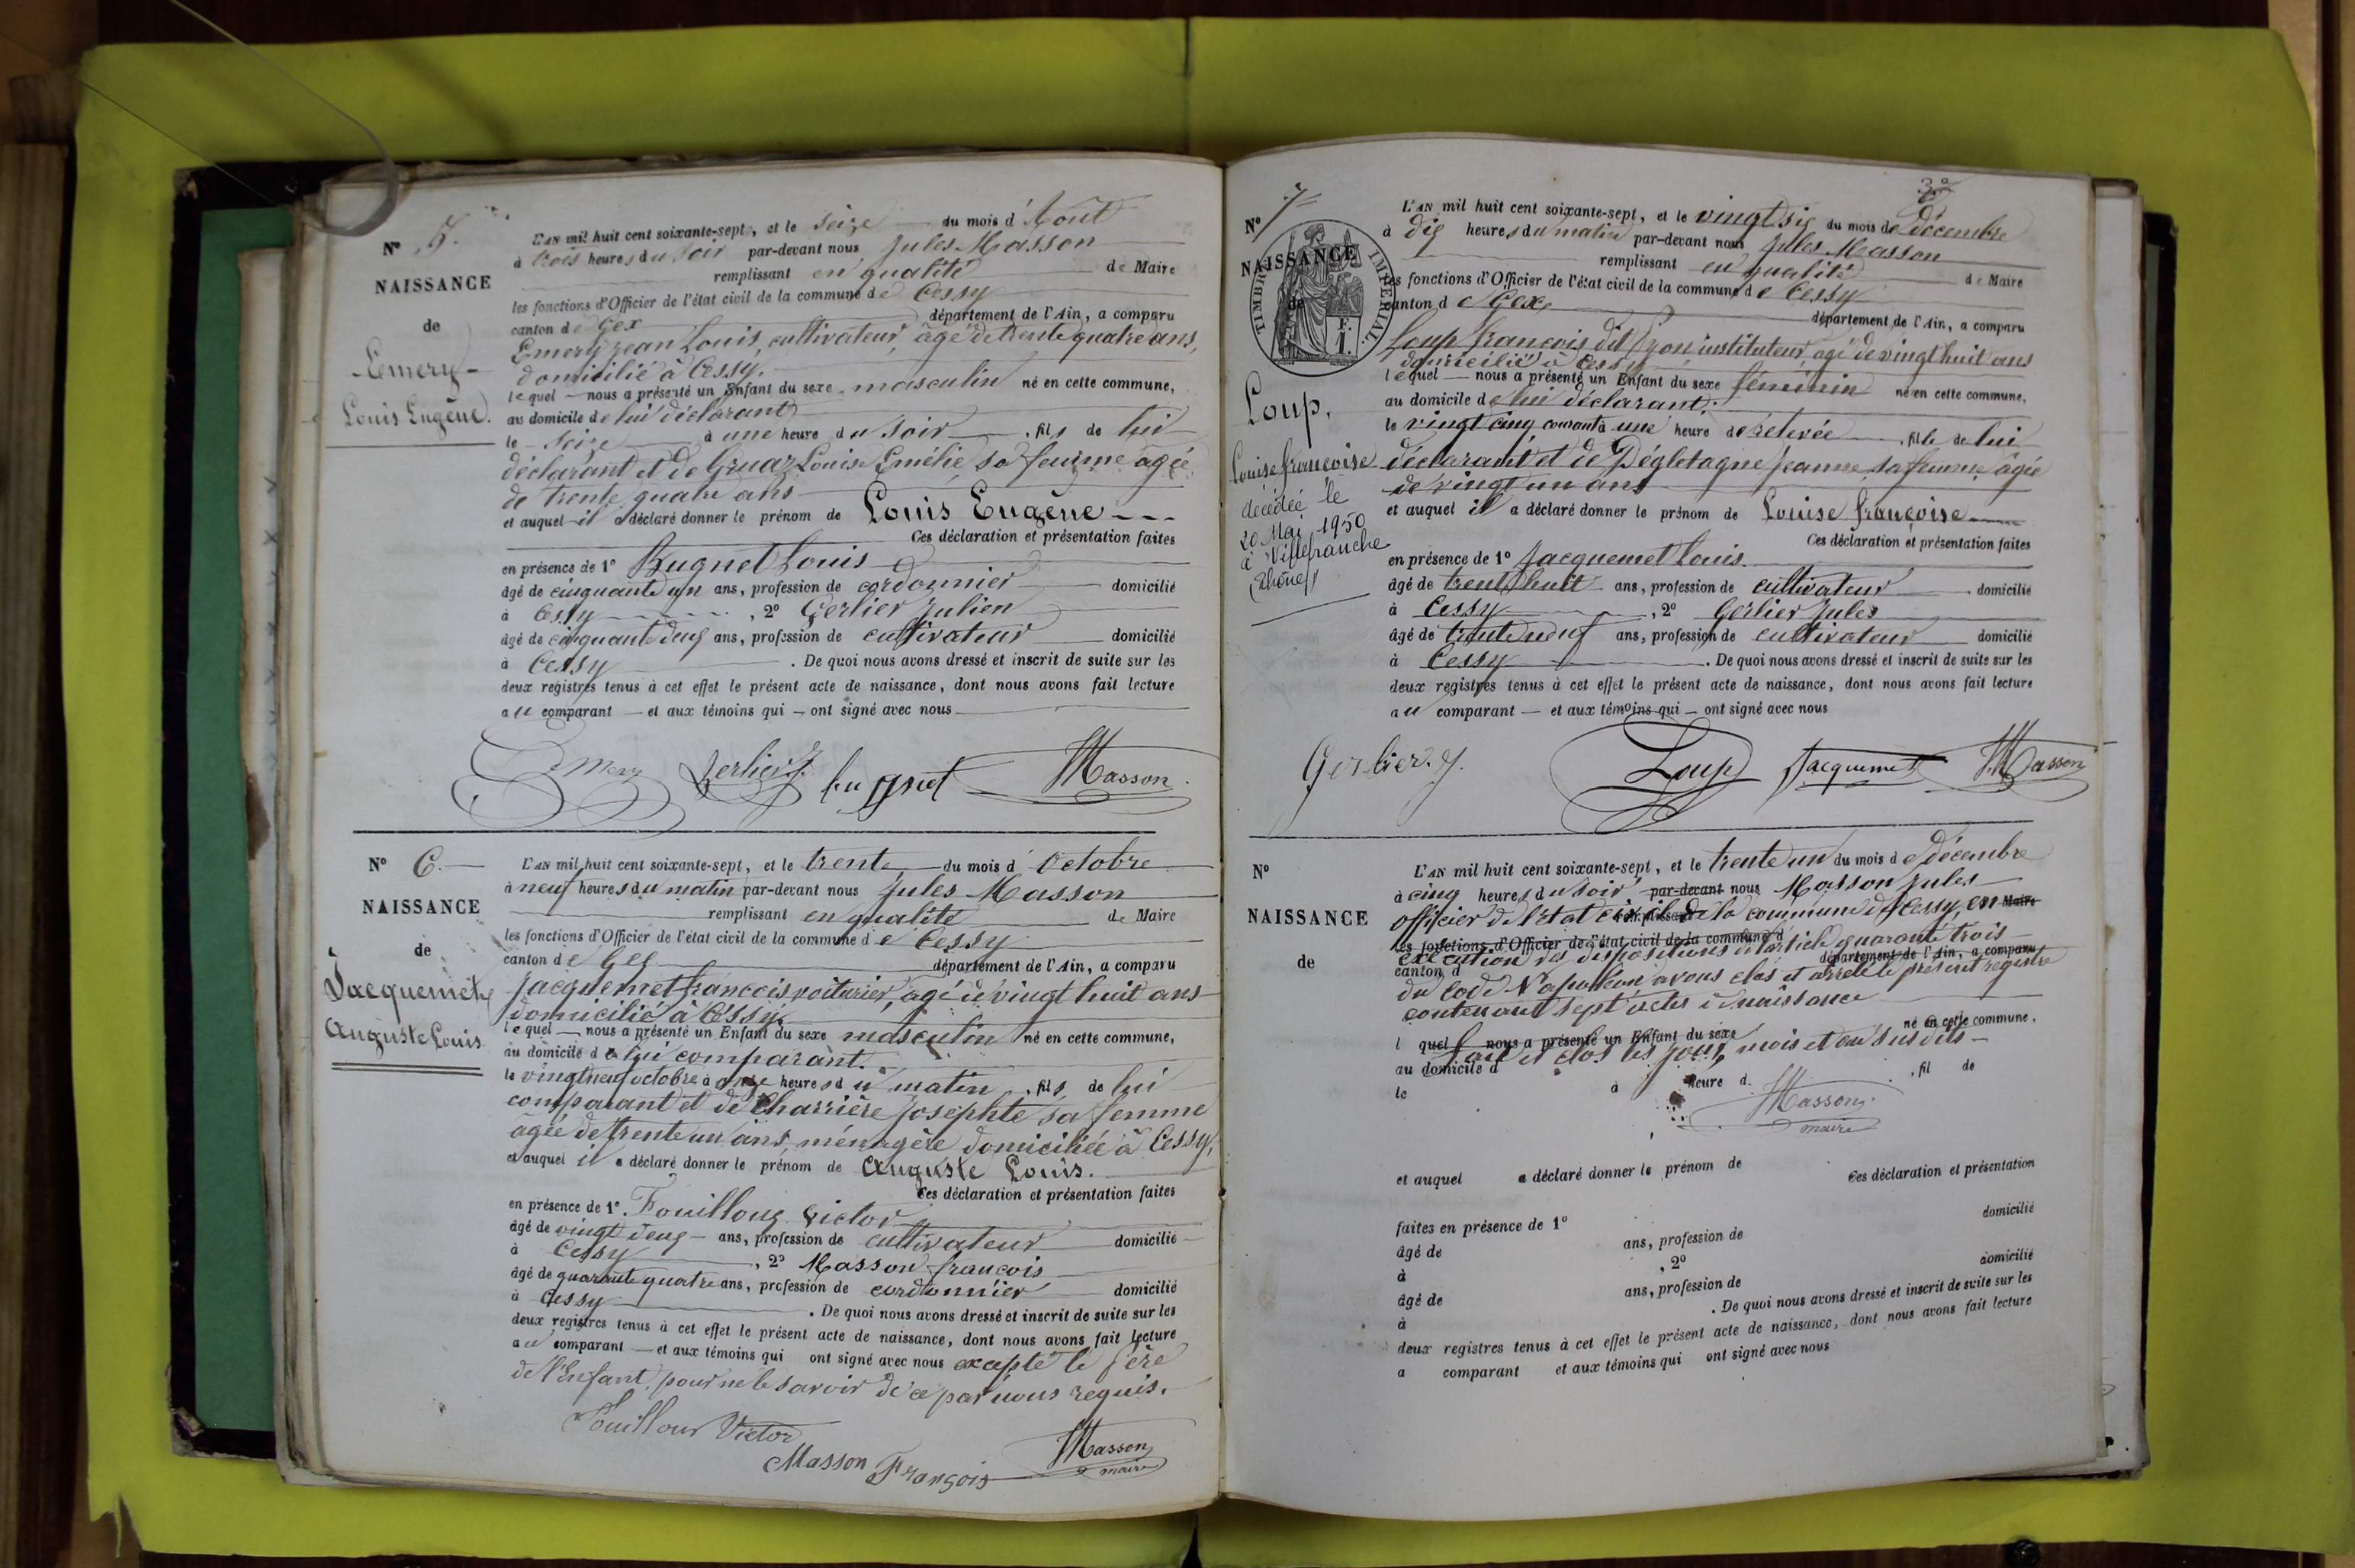 N° 5.
NAISSANCE
de
Emery
Louis Eugène.
L'AN mil huit cent soixante-sept, et le seize du mois d'Août
à trois heures du soir par-devant nous Jules Masson
remplissant en qualité de Maire
les fonctions d'Officier de l'état civil de la commune de Cessy
canton de Gex département de l'Ain, a comparu
Emery Jean Louis, cultivateur, âgé de trente quatre ans,
domicilié à Cessy.
lequel nous a présenté un Enfant du sexe masculin né en cette commune,
au domicile de lui déclarant
le seize à une heure du soir, fils de lui
déclarant et de Gruaz Louise Emélie, sa femme âgée
de trente quatre ans
et auquel il a déclaré donner le prénom de Louis Eugène
Ces déclaration et présentation faites
en présence de 1° Bugnet Louis
âgé de cinquante un ans, profession de cordonnier domicilié
à Cessy, 2° Gerlier Julien
âgé de cinquante deux ans, profession de cultivateur domicilié
à Cessy. De quoi nous avons dressé et inscrit de suite sur les
deux registres tenus à cet effet le présent acte de naissance, dont nous avons fait lecture
au comparant et aux témoins qui ont signé avec nous
Emery Gerlier J. bugnet Masson
N° 6.
NAISSANCE
de
Jacquemet
Auguste Louis
L'AN mil huit cent soixante-sept, et le trente du mois d'Octobre
à neuf heures du matin par-devant nous Jules Masson
remplissant en qualité de Maire
les fonctions d'Officier de l'état civil de la commune de Cessy
canton de Gex département de l'Ain, a comparu
Jacquemet françois voiturier, agé de vingt huit ans
domicilié à Cessy.
lequel nous a présenté un Enfant du sexe masculin né en cette commune,
au domicile de lui comparant.
le vingt neuf octobre à onze heures du matin, fils de lui
comparant et de Charrière Josephte sa femme
âgée de trente un ans, ménagère domiciliée à Cessy,
et auquel il a déclaré donner le prénom de Auguste Louis.
Ces déclaration et présentation faites
en présence de 1° Fouilloux Victor
âgé de vingt deux ans, profession de cultivateur domicilié
à Cessy, 2° Masson françois
âgé de quarante quatre ans, profession de cordonnier domicilié
à Cessy. De quoi nous avons dressé et inscrit de suite sur les
deux registres tenus à cet effet le présent acte de naissance, dont nous avons fait lecture
au comparant et aux témoins qui ont signé avec nous excepté le père
de l'Enfant pour ne le savoir de ce par nous requis.
Fouilloux Victor
Masson François
Masson
maire
3e
N° 7
NAISSANCE
de
TIMBRE IMPERIAL
Loup,
Louise françoise
décédée le
20 Mai 1950
à Villefranche
(Rhône)
L'AN mil huit cent soixante-sept, et le vingt six du mois de décembre
à dix heures du matin par-devant nous Jules Masson
remplissant en qualité de Maire
les fonctions d'Officier de l'état civil de la commune de Cessy
canton de Gex département de l'Ain, a comparu
Loup françois dit instituteur, agé de vingt huit ans
domicilié à Cessy
lequel nous a présenté un Enfant du sexe féminin né en cette commune,
au domicile de lui déclarant.
le vingt cinq courant à une heure de relevée, fille de lui
déclarant et de Dégletagne Jeanne, sa femme, âgée
de vingt un ans
et auquel il a déclaré donner le prénom de Louise françoise
Ces déclaration et présentation faites
en présence de 1° Jacquemet Louis.
âgé de trente huit ans, profession de cultivateur domicilié
à Cessy, 2° Gerlier Jules
âgé de trente neuf ans, profession de cultivateur domicilié
à Cessy. De quoi nous avons dressé et inscrit de suite sur les
deux registres tenus à cet effet le présent acte de naissance, dont nous avons fait lecture
au comparant et aux témoins qui ont signé avec nous
Gerlier. J. Loup Jacquemet Masson
N°
NAISSANCE
de
L'AN mil huit cent soixante-sept, et le trente un du mois de décembre
à cinq heures du soir par-devant nous Masson Jules
officier de l'état civil de la commune de Cessy, en Maire
les fonctions d'Officier de l'état civil de la commune d
exécution des dispositions de l'article quarante trois
canton d département de l'Ain, a comparu
du Code Napoléon, avons clos et arrêté le présent registre
contenant sept actes de naissance
l quel nous a présenté un Enfant du sexe né en cette commune,
fait et clos les jour, mois et an susdits
au domicile d
le à heure d. , fil de
Masson
maire
et auquel a déclaré donner le prénom de
Ces déclaration et présentation
faites en présence de 1°
âgé de ans, profession de domicilié
à , 2°
âgé de ans, profession de domicilié
à . De quoi nous avons dressé et inscrit de suite sur les
deux registres tenus à cet effet le présent acte de naissance, dont nous avons fait lecture
a comparant et aux témoins qui ont signé avec nous